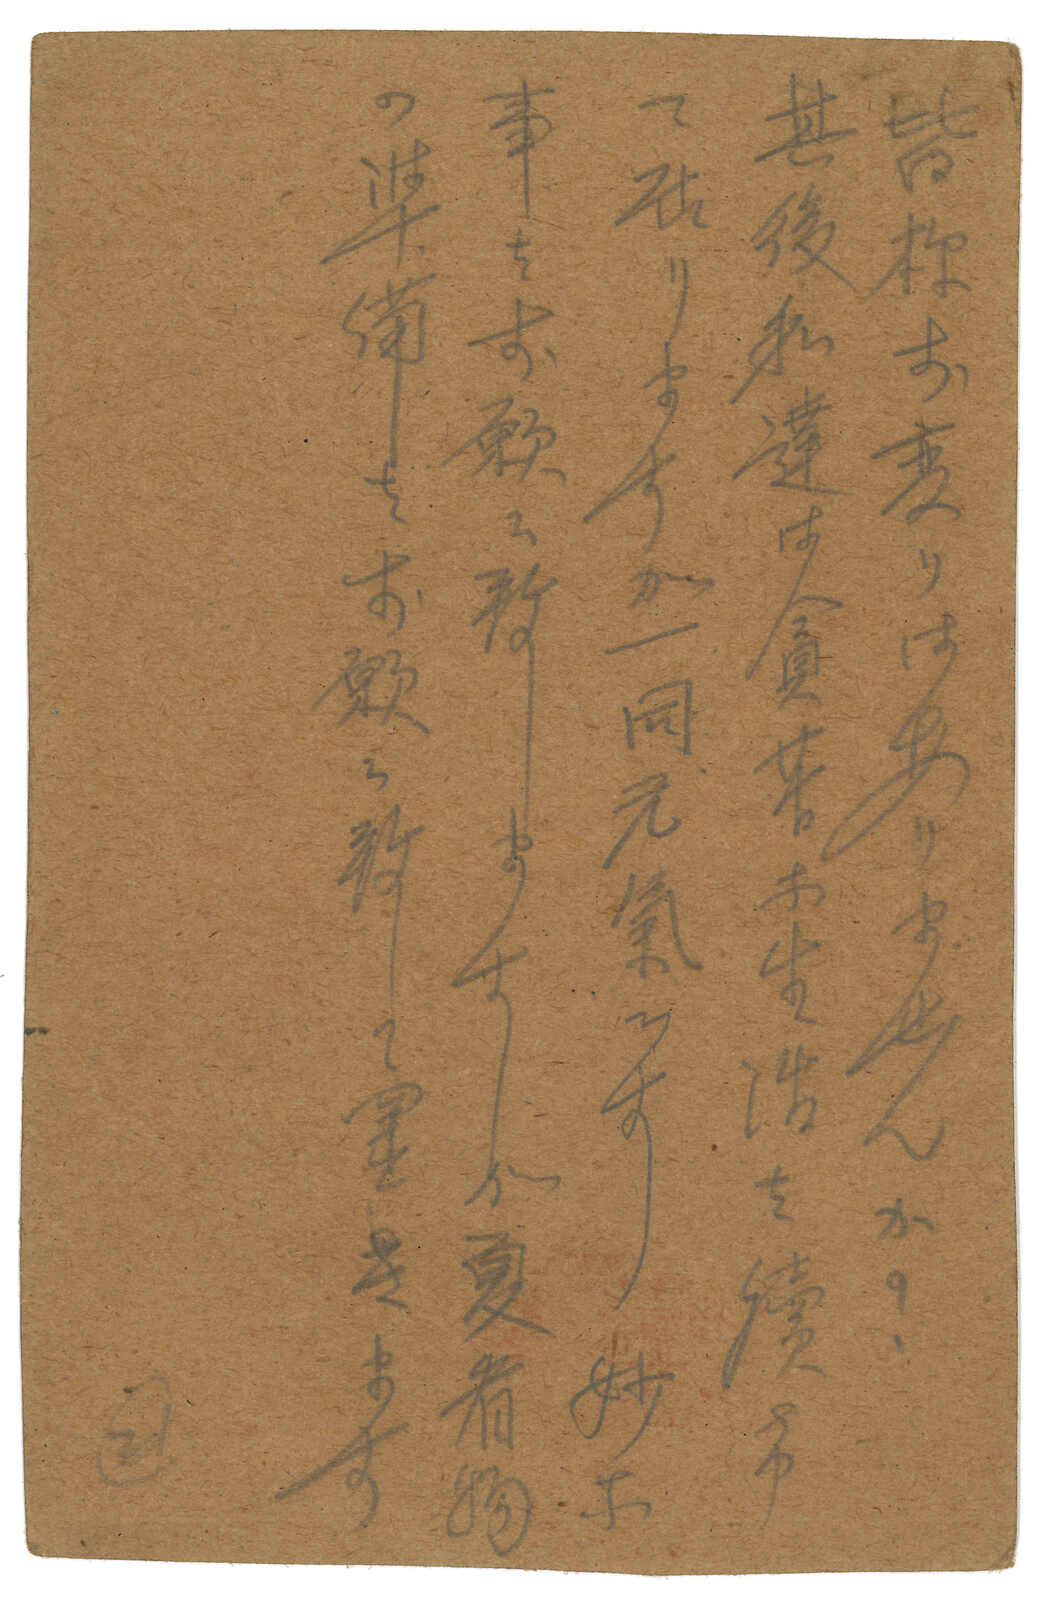 皆様お変りはありませんか?、
其後私達は貧苦な生活を續け
て居りますが一同元氣です 妙な
事をお願ひ致しますが夏着物
の準備をお願ひ致して置きます